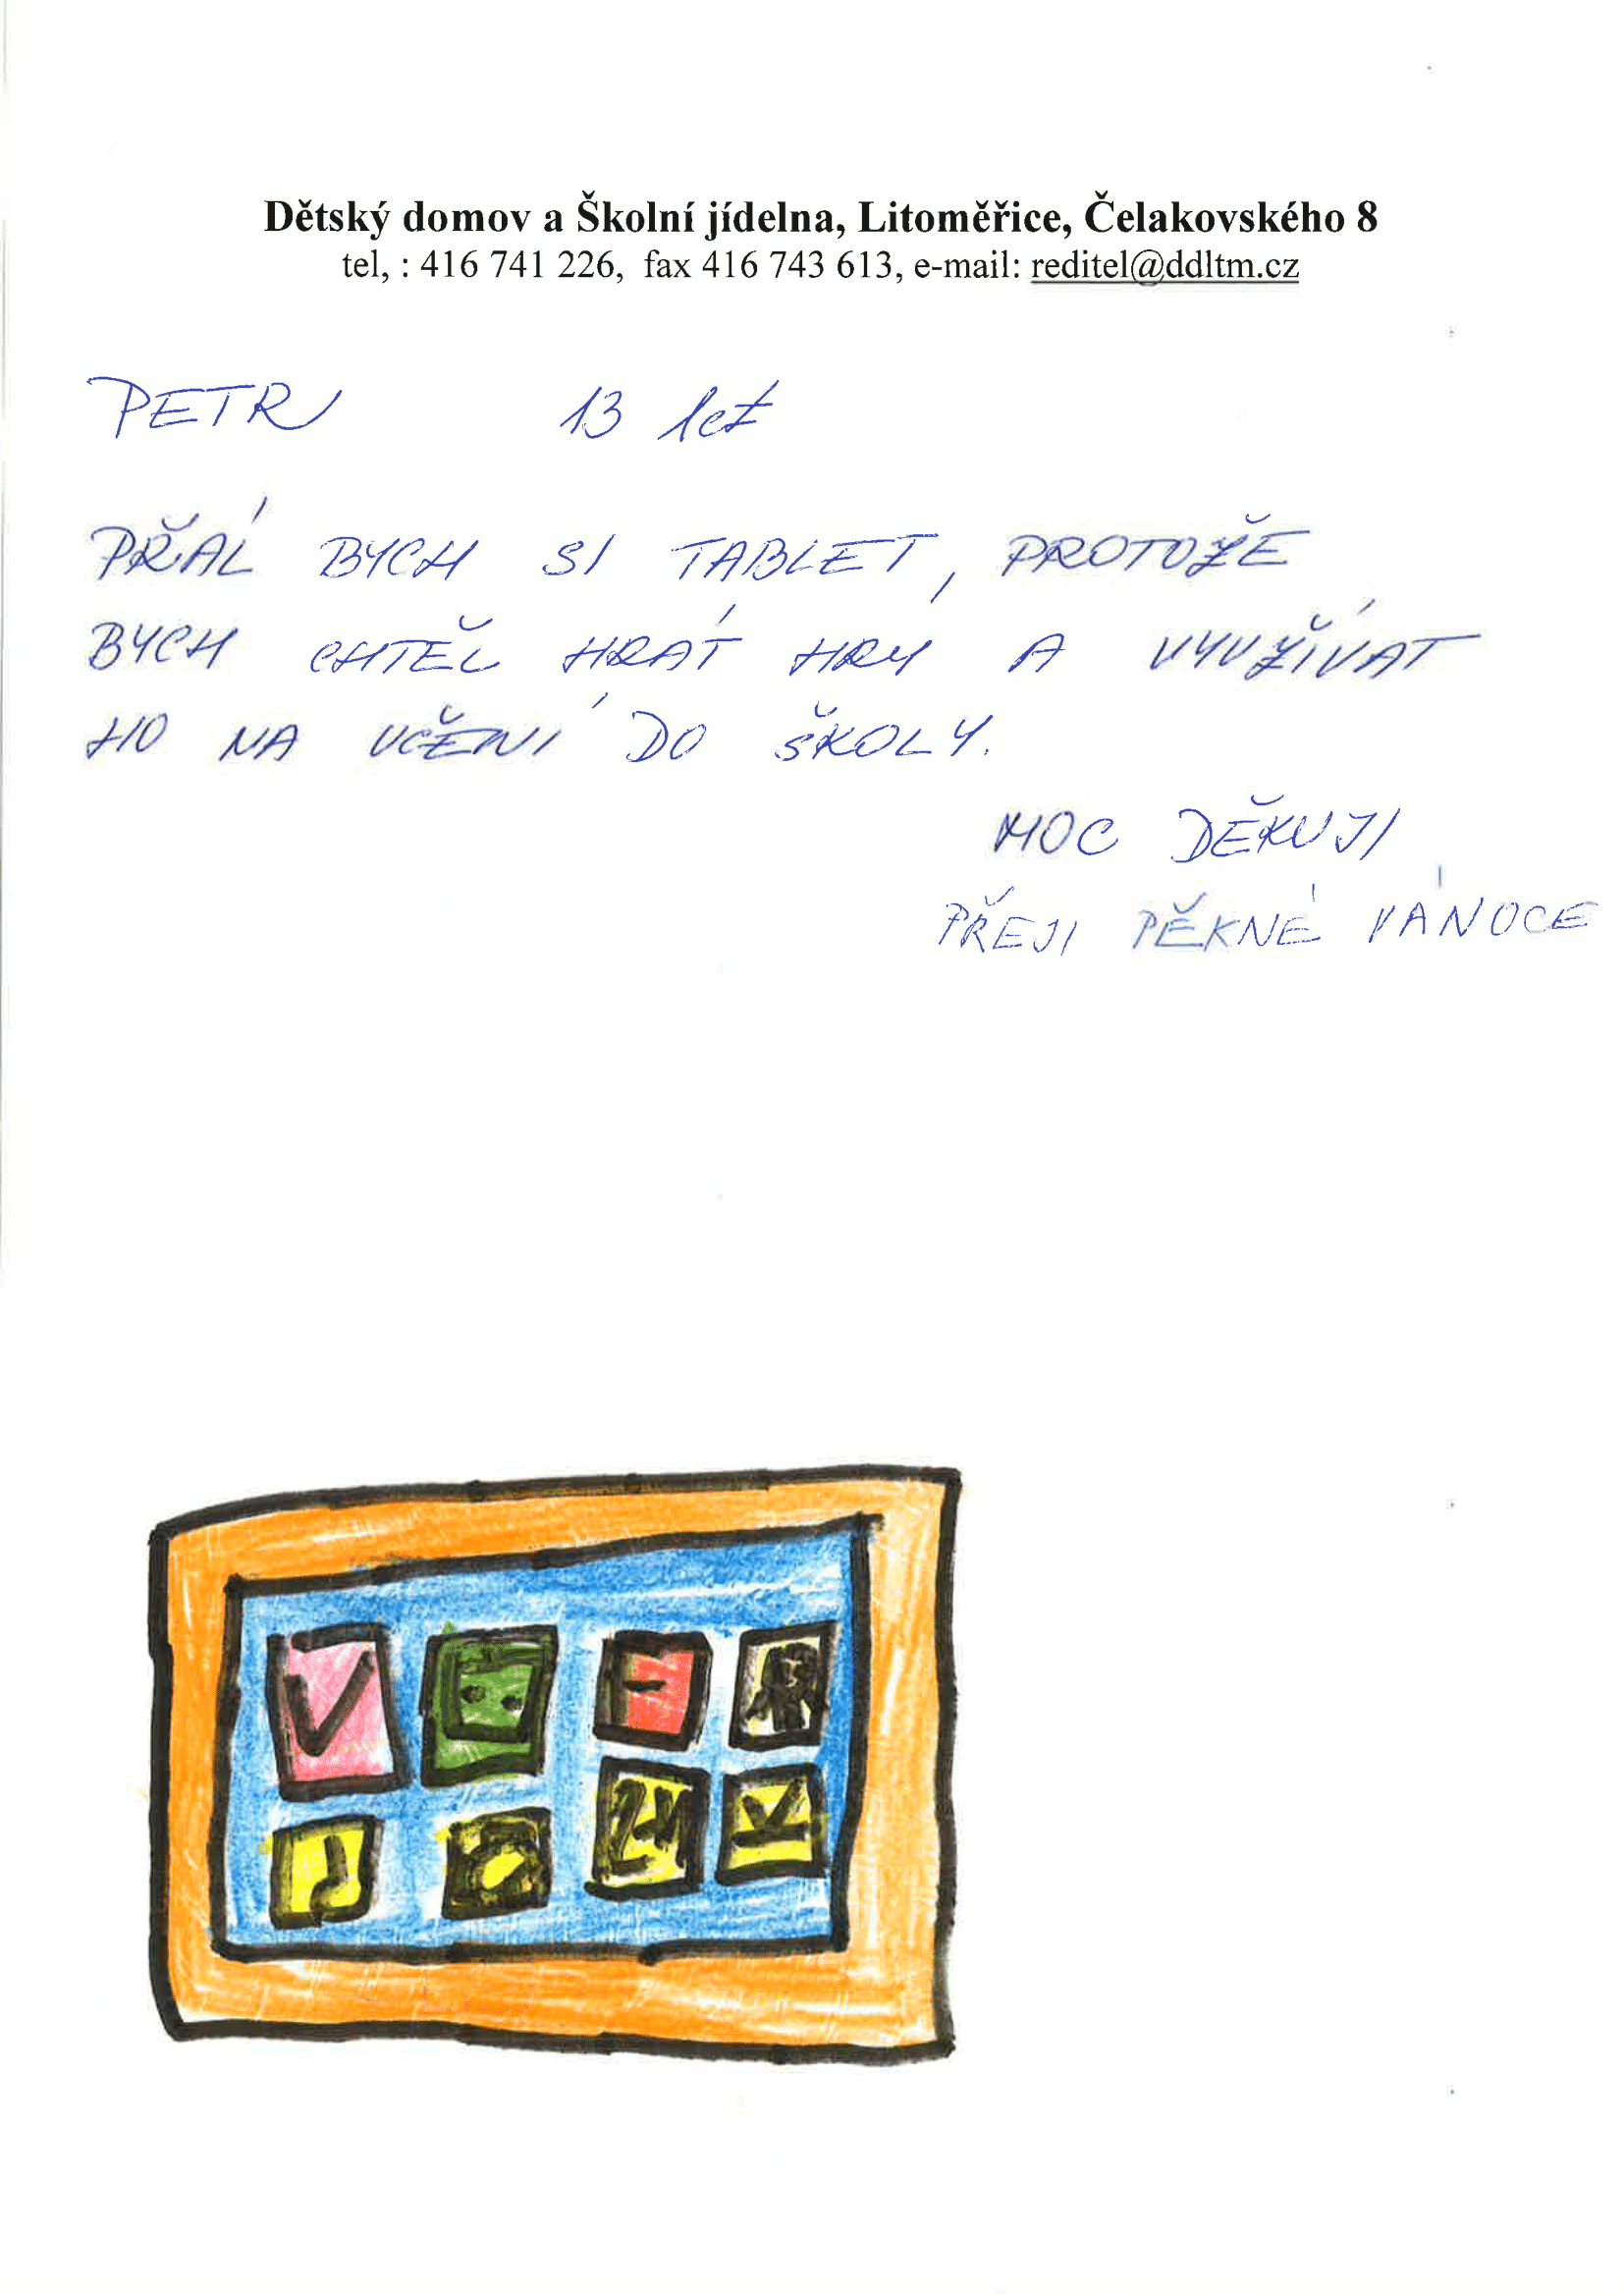 Dětský domov a Školní jídelna, Litoměřice, Čelakovského 8
tel, : 416 741 226, fax 416 743 613, e-mail: reditel@ddltm.cz
PETR 13 let
PŘÁL BYCH SI TABLET, PROTOŽE
BYCH CHTĚL HRÁT HRY A VYUŽÍVAT
HO NA UČENÍ DO ŠKOLY.
MOC DĚKUJI
PŘEJI PĚKNÉ VÁNOCE